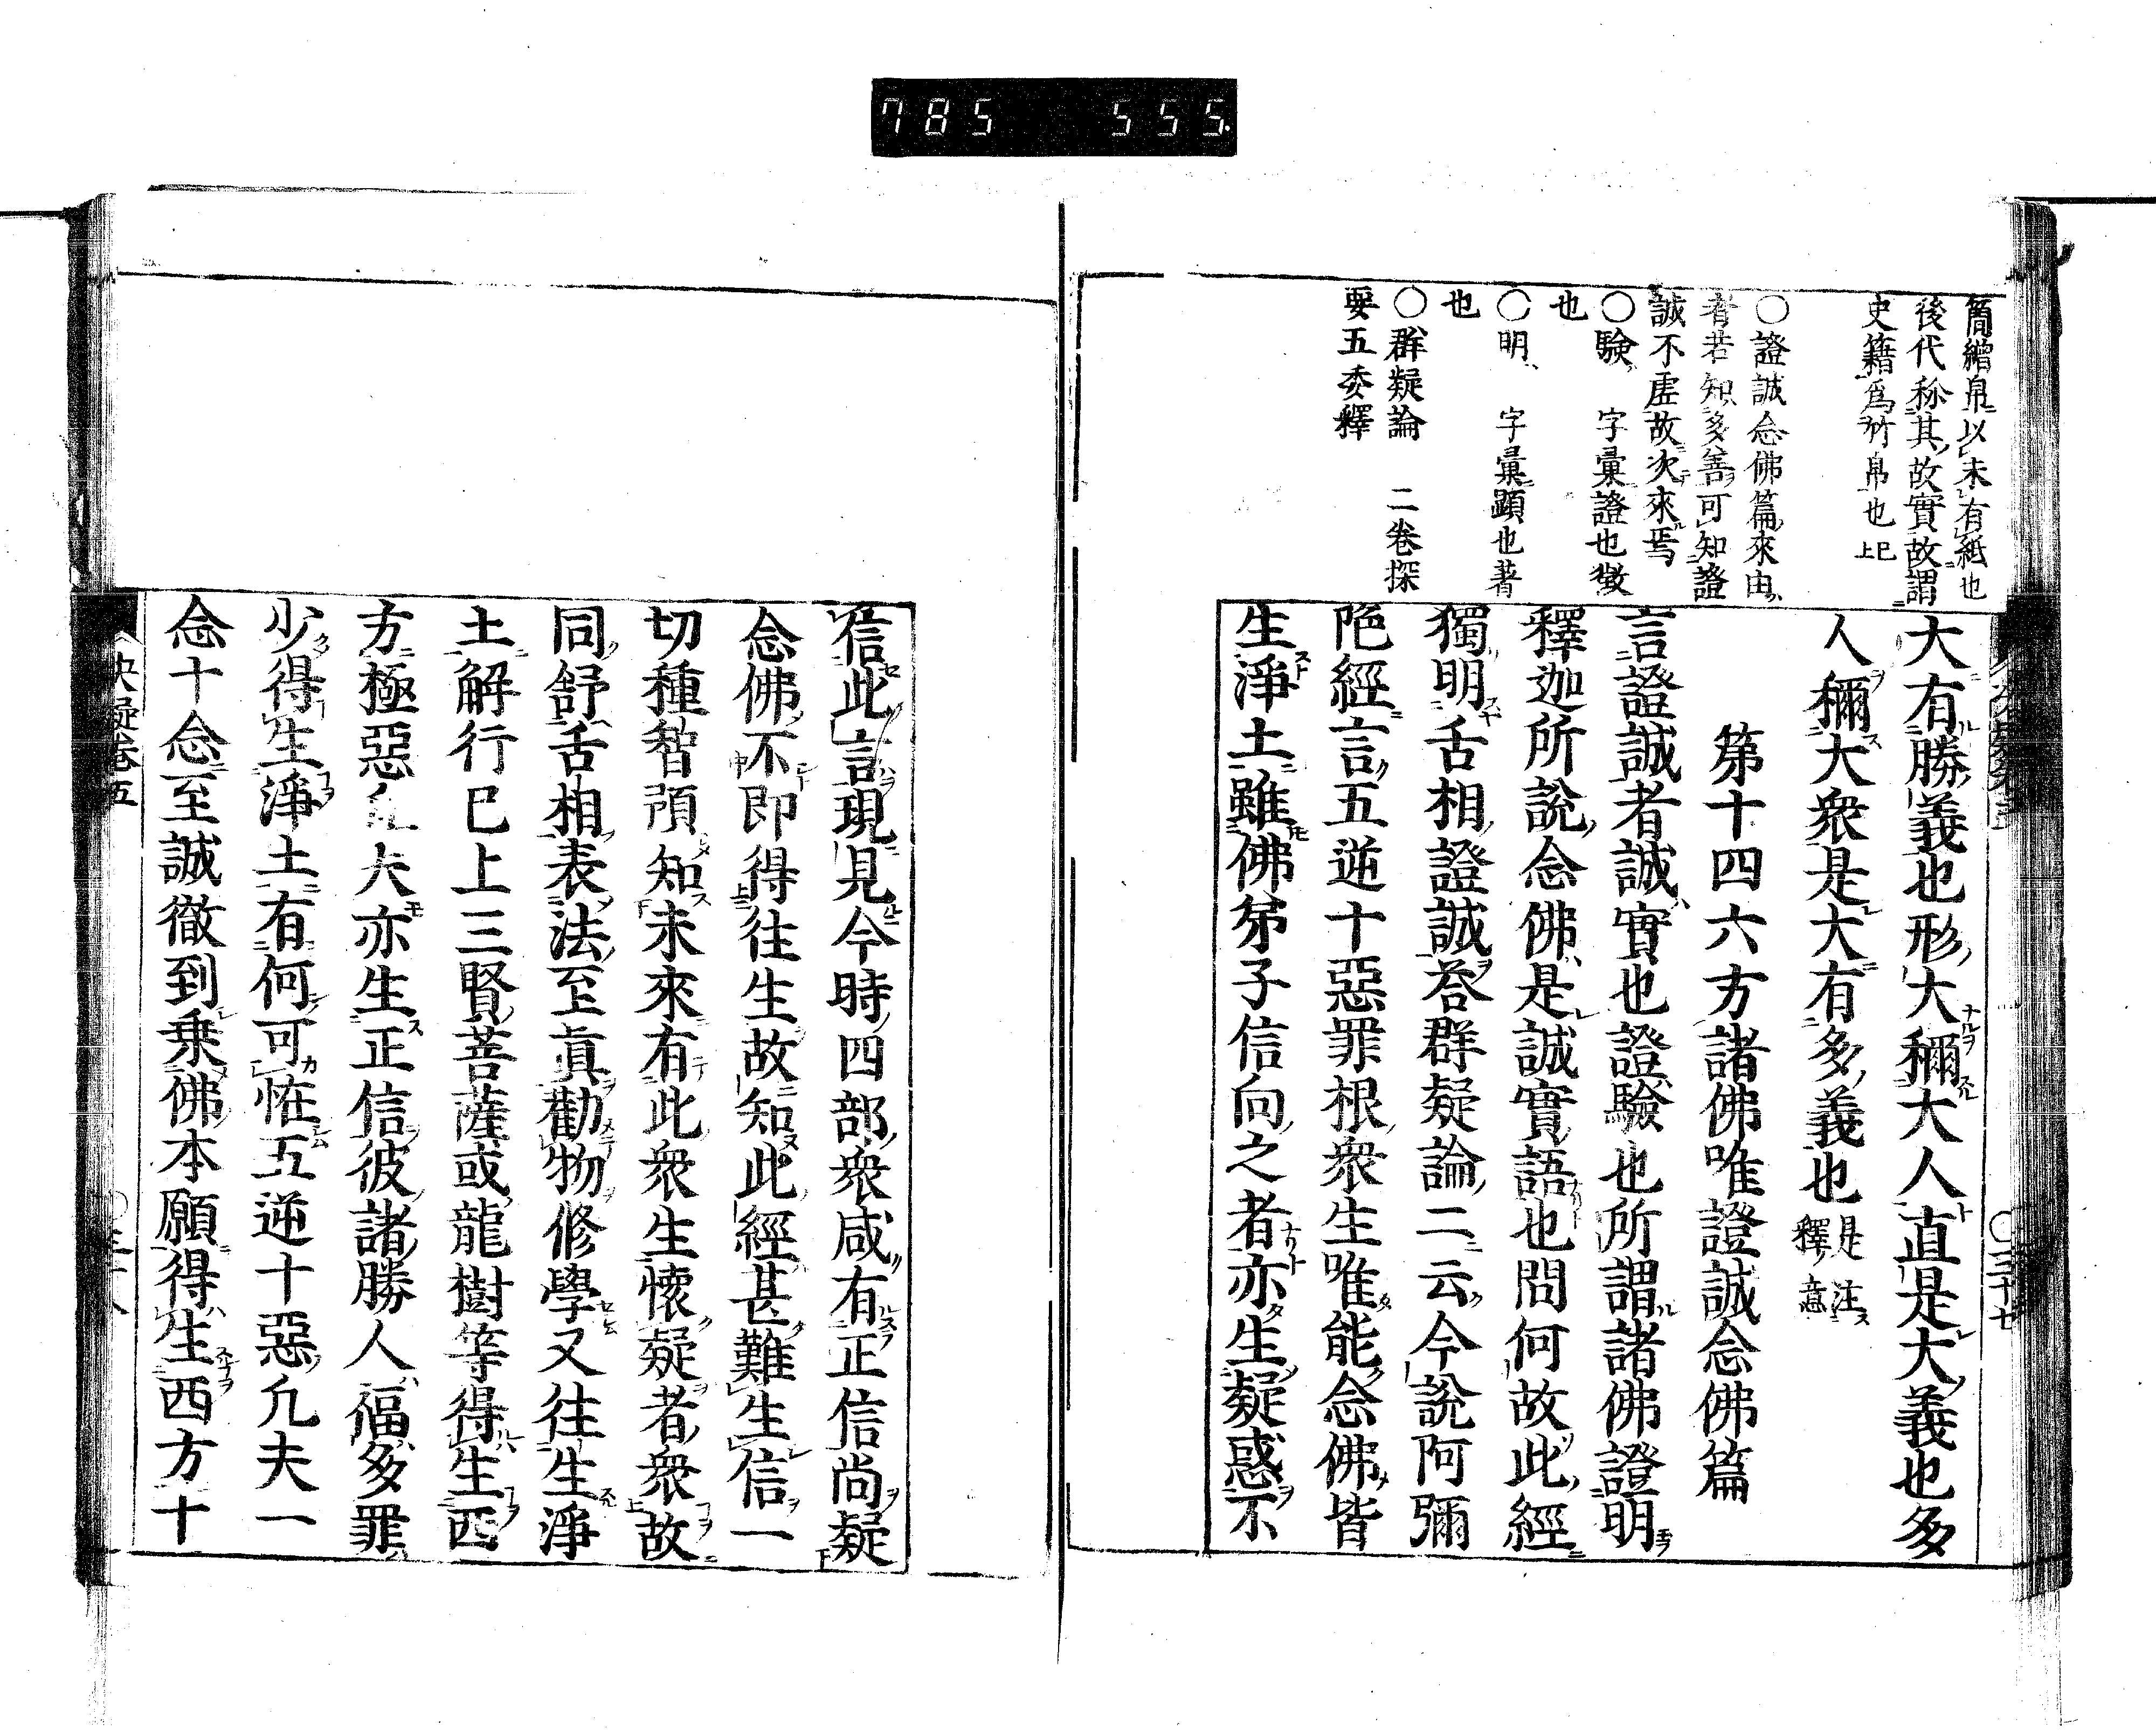 785 555
簡繒帛以未有紙也
後代称其故實故謂
史籍爲竹帛也 已上
〇證誠念佛篇來由
者若知多善可知證
誠不虚故次來焉
〇驗 字彙證也徴
也
〇明 字彙顕也著
也
〇群疑論 二卷探
要五委釋
大有勝義也形大稱大人直是大義也多
人稱大衆是大有多義也 是注釋意
第十四六方諸佛唯證誠念佛篇
言證誠者誠實也證驗也所謂諸佛證明
釋迦所説念佛是誠實語也問何故此經
獨明舌相證誠答群疑論二云今説阿彌
陀經言五逆十惡罪根衆生唯能念佛皆
生淨土雖佛弟子信向之者亦生疑惑不
〇三十七
信此言現見今時四部衆咸有正信尚疑
念佛不即得往生故知此經甚難生信一
切種智預知未來有此衆生懷疑者衆故
同舒舌相表法至眞勸物修學又往生淨
土解行已上三賢菩薩或龍樹等得生西
方極惡凡夫亦生正信彼諸勝人福多罪
少得生淨土有何可恠五逆十惡凡夫一
念十念至誠徹到乗佛本願得生西方十
決疑卷五